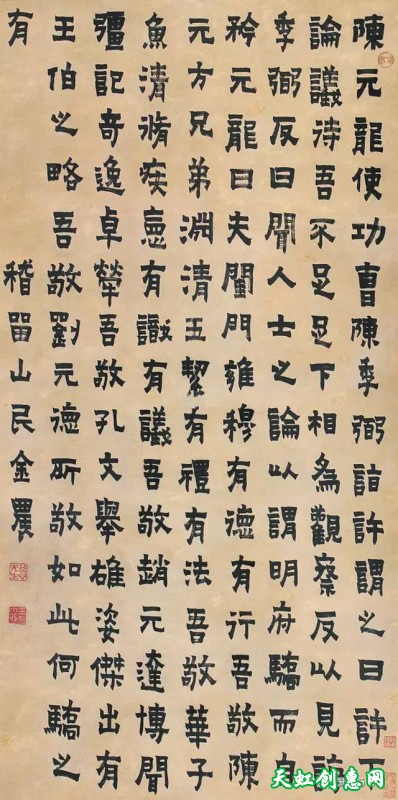 陳元龍使功曹陳季弼詣許謂之曰許下
論議待吾不足足下相為觀察反以見
季弼反曰聞人士之論以謂明府驕而自
矜元龍曰夫閨門雍穆有德有行吾敬陳
元方兄弟淵清玉絜有禮有法吾敬華子
魚清脩疾惡有識有議吾敬趙元達博聞
彊記奇逸卓犖吾敬孔文舉雄姿傑出有
王伯之略吾敬劉元德所敬如此何驕之
有 稽留山民金農
天虹创惠网